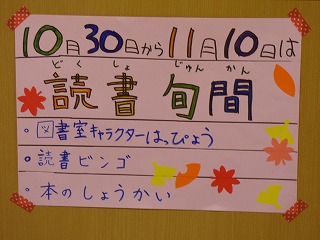 10月30日から11月10日は
どくしょ じゅんかん
読書旬間
・図書室キャラクターはっぴょう
・読書ビンゴ
・本のしょうかい